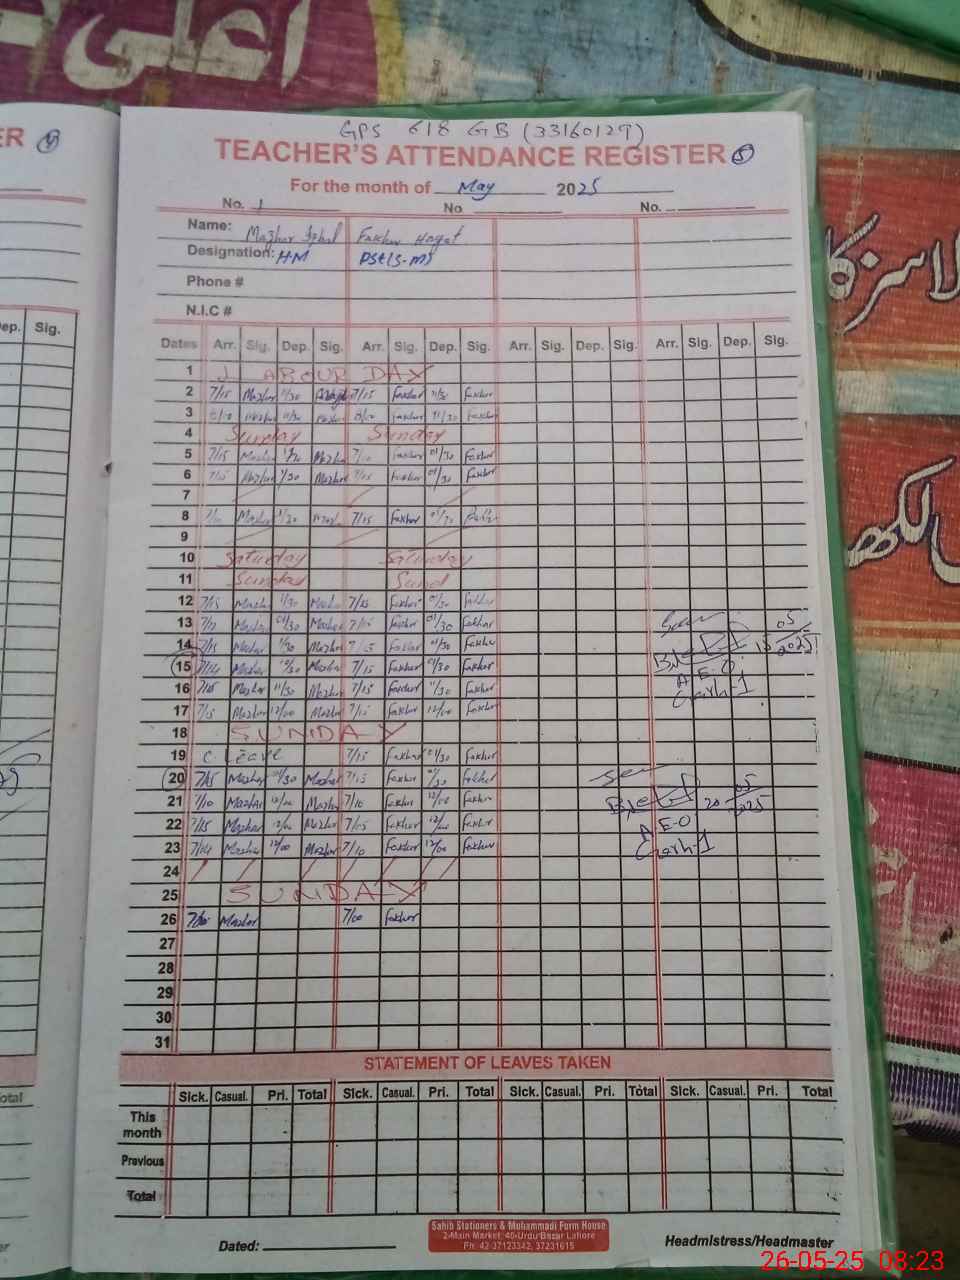 اعلیٰ
GPS 618 GB (33160127)
TEACHER'S ATTENDANCE REGISTER 5
For the month of May 2025
No. 1 No No.
Name: Mazhar Iqbal Fakhar Hayat
Designation: HM PST(S-M)
Phone #
N.I.C #
Dates Arr. Sig. Dep. Sig. Arr. Sig. Dep. Sig. Arr. Sig. Dep. Sig. Arr. Sig. Dep. Sig.
1 LABOUR DAY
2 7/15 Mazhar 11/30 7/15 Fakhar 11/30 Fakhar
3 Mazhar 11/30 Fakhar 11/30 Fakhar
4 Sunday Sunday
5 7/15 Mazhar Mazhar Fakhar 01/30 Fakhar
6 7/15 Mazhar 1/30 Mazhar 7/15 Fakhar 01/30 Fakhar
7
8 Mazhar 1/30 7/15 Fakhar 01/30
9
10 Saturday Saturday
11 Sunday Sund
12 7/15 Mazhar 1/30 Mazhar 7/15 Fakhar 01/30 Fakhar
13 Mazhar 01/30 Mazhar 7/15 Fakhar 01/30 Fakhar
14 7/15 Mazhar 1/30 Mazhar 7/15 Fakhar 01/30 Fakhar
15 7/14 Mazhar Mazhar 7/15 Fakhar 01/30 Fakhar
16 7/15 Mazhar 11/30 Mazhar 7/15 Fakhar 11/30 Fakhar
17 7/15 Mazhar 12/00 Mazhar 7/15 Fakhar 12/00 Fakhar
18 SUNDAY
19 C. Leave 7/15 Fakhar 01/30 Fakhar
20 7/15 Mazhar 01/30 Mazhar 7/15 Fakhar 01/30 Fakhar
21 7/10 Mazhar 12/00 Mazhar 7/10 Fakhar 12/00 Fakhar
22 7/15 Mazhar 12/00 Mazhar 7/15 Fakhar 12/00 Fakhar
23 7/14 Mazhar 12/00 Mazhar 7/10 Fakhar 12/00 Fakhar
24
25 SUNDAY
26 Mazhar 7/00 Fakhar
27
28
29
30
31
Seen
15 05 2025
A.E.O
Garh-1
Seen
20 05 2025
A.E.O
Garh-1
STATEMENT OF LEAVES TAKEN
Sick. Casual. Pri. Total Sick. Casual. Pri. Total Sick. Casual. Pri. Total Sick. Casual. Pri. Total
This month
Previous
Total
Dated:
Sahib Stationers & Muhammadi Form House
2-Main Market 40-Urdu Bazar Lahore
Ph: 42-37123342, 37231615
Headmistress/Headmaster
26-05-25 08:23
ER 4
Dep. Sig.
Total